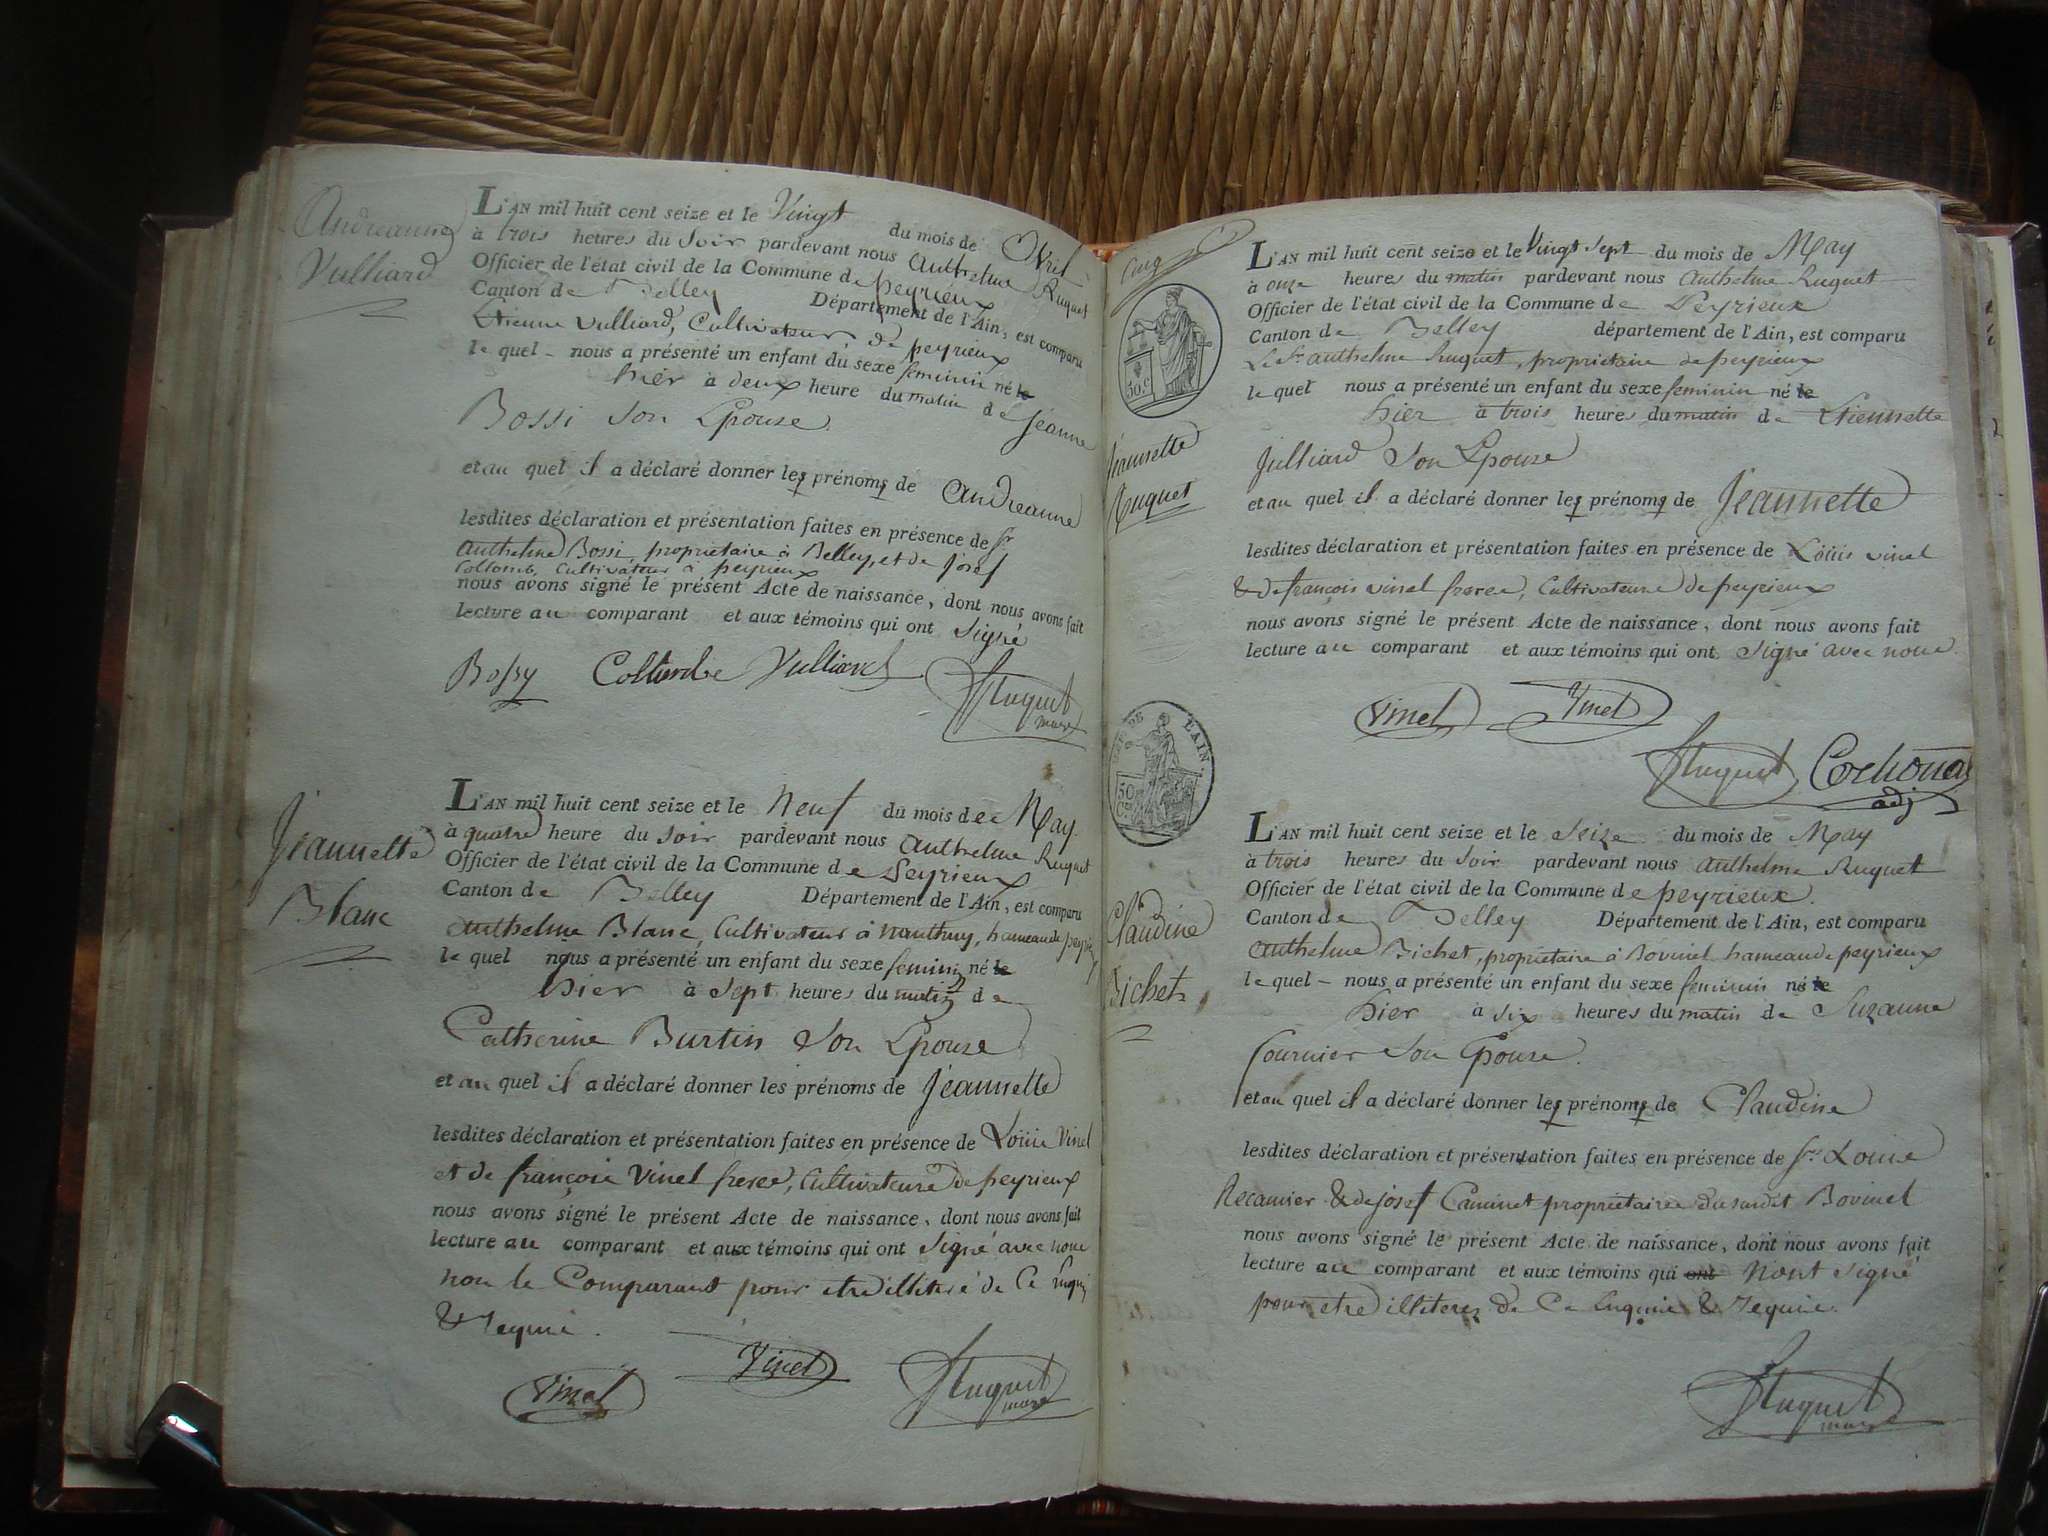 Andréanne
Vulliard
L'AN mil huit cent seize et le Vingt du mois de Avril
à trois heures du Soir pardevant nous Anthelme Ruquet
Officier de l'état civil de la Commune de peyrieux
Canton de Belley Département de l'Ain, est comparu
Etienne Vulliard, Cultivateur, de peyrieux
le quel - nous a présenté un enfant du sexe feminin né le
hier à deux heure du matin de Jéanne
Bossi Son Epouse
et au quel il a déclaré donner les prénoms de Andréanne
lesdites déclaration et présentation faites en présence de Sr
Anthelme Bossi, propriétaire à Belley, et de Josef
Collomb, Cultivateur à peyrieux
nous avons signé le présent Acte de naissance, dont nous avons fait
lecture au comparant et aux témoins qui ont Signé
Bossy Collombe Vulliard Ruquet
maire
Jéannette
Blanc
L'AN mil huit cent seize et le Neuf du mois de May
à quatre heure du Soir pardevant nous Anthelme Ruquet
Officier de l'état civil de la Commune de Peyrieux
Canton de Belley Département de l'Ain, est comparu
Anthelme Blanc, Cultivateur à hameau de
le quel nous a présenté un enfant du sexe feminin né le
hier à Sept heures du matin de
Catherine Burtin Son Epouse
et au quel il a déclaré donner les prénoms de Jéannette
lesdites déclaration et présentation faites en présence de Loüis Vinel
et de françois Vinel freres, Cultivateurs de peyrieux
nous avons signé le présent Acte de naissance, dont nous avons fait
lecture au comparant et aux témoins qui ont Signé avec nous
non le Comparant pour etre illiteré de Ce Enquis
& Requis.
Vinel Vinel Ruquet
maire
Cinq
50 c
Jéannette
Ruquet
L'AN mil huit cent seize et le Vingt Sept du mois de May
à onze heures du matin pardevant nous Anthelme Ruquet
Officier de l'état civil de la Commune de Peyrieux
Canton de Belley département de l'Ain, est comparu
Le Sr Anthelme Ruquet, propriétaire de peyrieux
le quel nous a présenté un enfant du sexe feminin né le
hier à trois heures du matin de Etiennette
Julliard Son Epouse
et au quel il a déclaré donner les prénoms de Jéannette
lesdites déclaration et présentation faites en présence de Loüis vinel
& de françois vinel freres, Cultivateurs de peyrieux
nous avons signé le présent Acte de naissance, dont nous avons fait
lecture au comparant et aux témoins qui ont Signé avec nous
Vinel Vinel
Ruquet Cochonat
adj
L'AIN.
50
Claudine
Bichet
L'AN mil huit cent seize et le Seize du mois de May
à trois heures du Soir pardevant nous Anthelme Ruquet
Officier de l'état civil de la Commune de peyrieux
Canton de Belley Département de l'Ain, est comparu
Anthelme Bichet, propriétaire à Bovinel hameau de peyrieux
le quel - nous a présenté un enfant du sexe feminin né le
hier à Six heures du matin de Suzanne
fournier Son Epouse.
et au quel il a déclaré donner les prénoms de Claudine
lesdites déclaration et présentation faites en présence de Srs Louis
Recamier & de Josef Caminet propriétaires du susdit Bovinel
nous avons signé le présent Acte de naissance, dont nous avons fait
lecture au comparant et aux témoins qui ont Nont Signé
pour etre illiterez de Ce Enquis & Requis.
Ruquet
maire